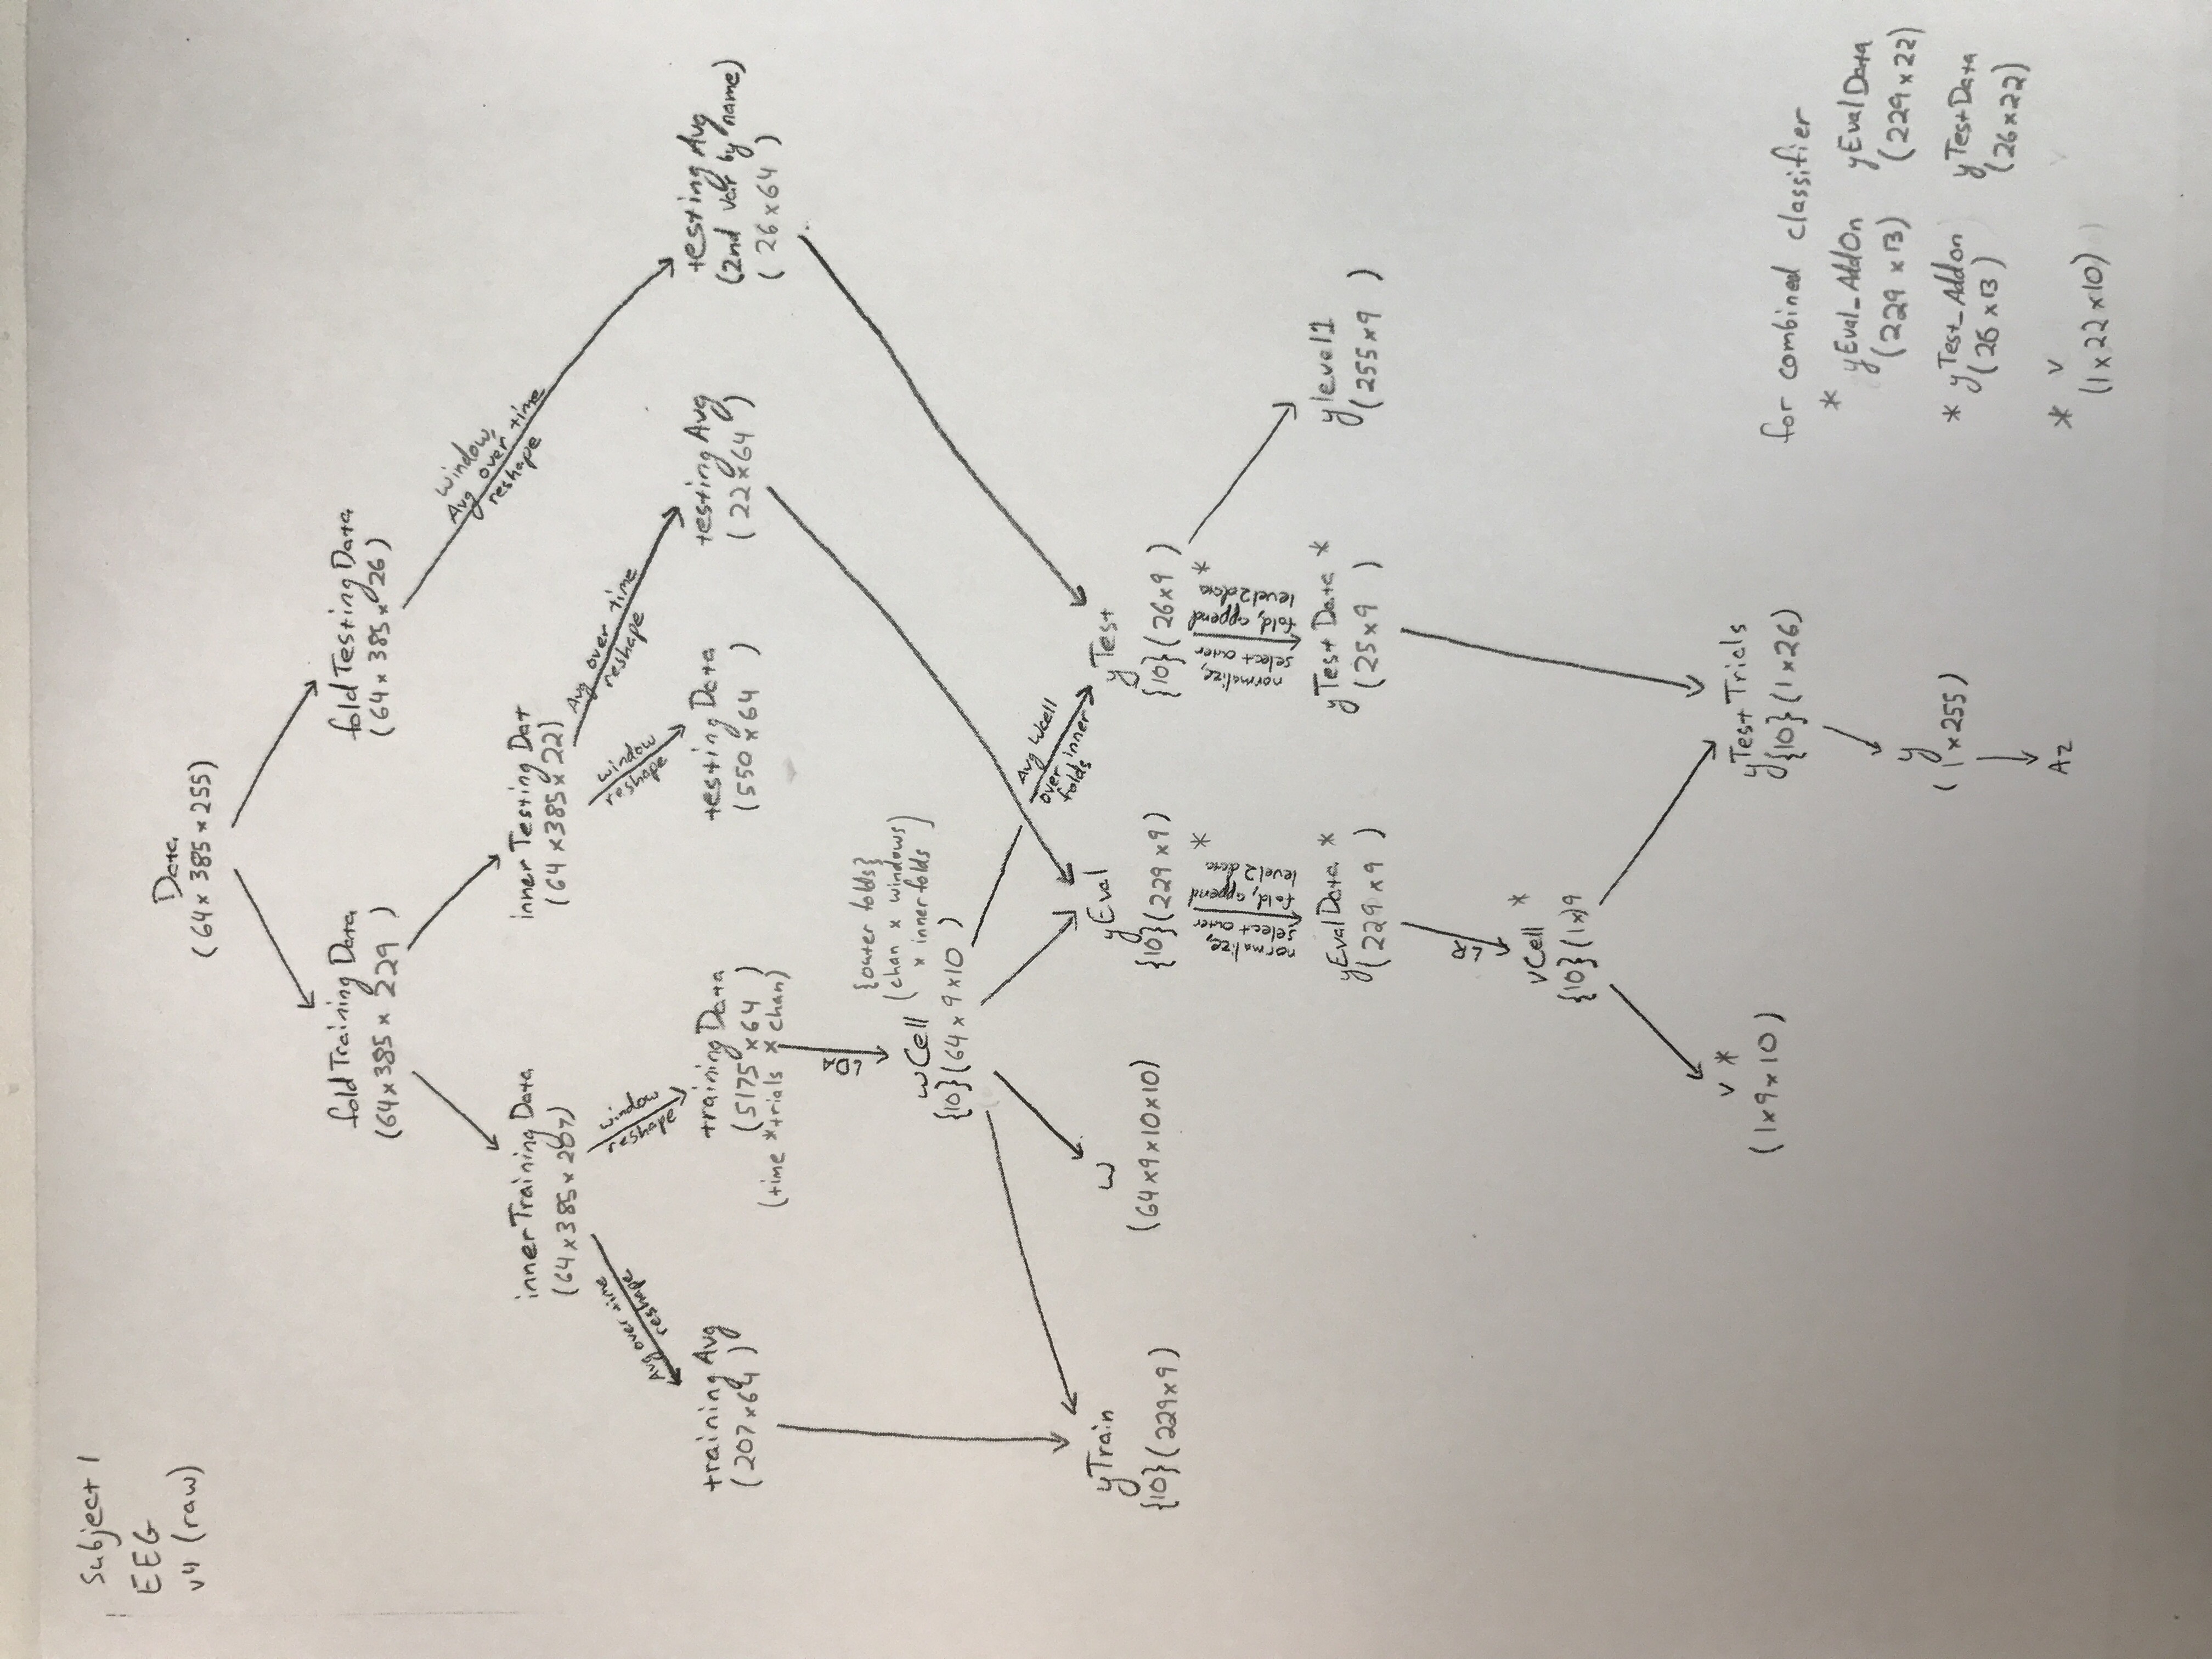 Subject 1
EEG
v4 (raw)
Data
(64 x 385 x 255)
fold Training Data
(64 x 385 x 229 )
fold Testing Data
(64 x 385 x 26)
window,
Avg over time
reshape
inner Training Data
(64 x 385 x 207)
inner Testing Dat
(64 x 385 x 22)
Avg over time
reshape
window
reshape
window
reshape
Avg over time
reshape
training Avg
(207 x 64 )
training Data
(5175 x 64 )
(time * trials x chan)
testing Data
(550 x 64 )
testing Avg
(22 x 64 )
testing Avg
(2nd var by name)
(26 x 64 )
LDA
{outer folds}
(chan x windows)
x inner folds
wCell
{10}(64 x 9 x 10 )
Avg Wcell
over inner
folds
yTrain
{10}(229 x 9)
w
(64 x 9 x 10 x 10)
yEval
{10}(229 x 9)
yTest
{10}(26 x 9 )
normalize,
select outer
fold, append
level2data
*
normalize,
select outer
fold, append
level2data
*
yEvalData *
(229 x 9 )
yTest Data *
(25 x 9 )
ylevel1
(255 x 9 )
LR
vCell *
{10}(1x)9
v *
(1 x 9 x 10 )
yTest Trials
{10}(1 x 26)
y
(1 x 255)
Az
for combined classifier
* yEval_AddOn yEvalData
(229 x 13) (229 x 22)
* yTest_Addon yTestData
(26 x 13) (26 x 22)
* v
(1 x 22 x 10)